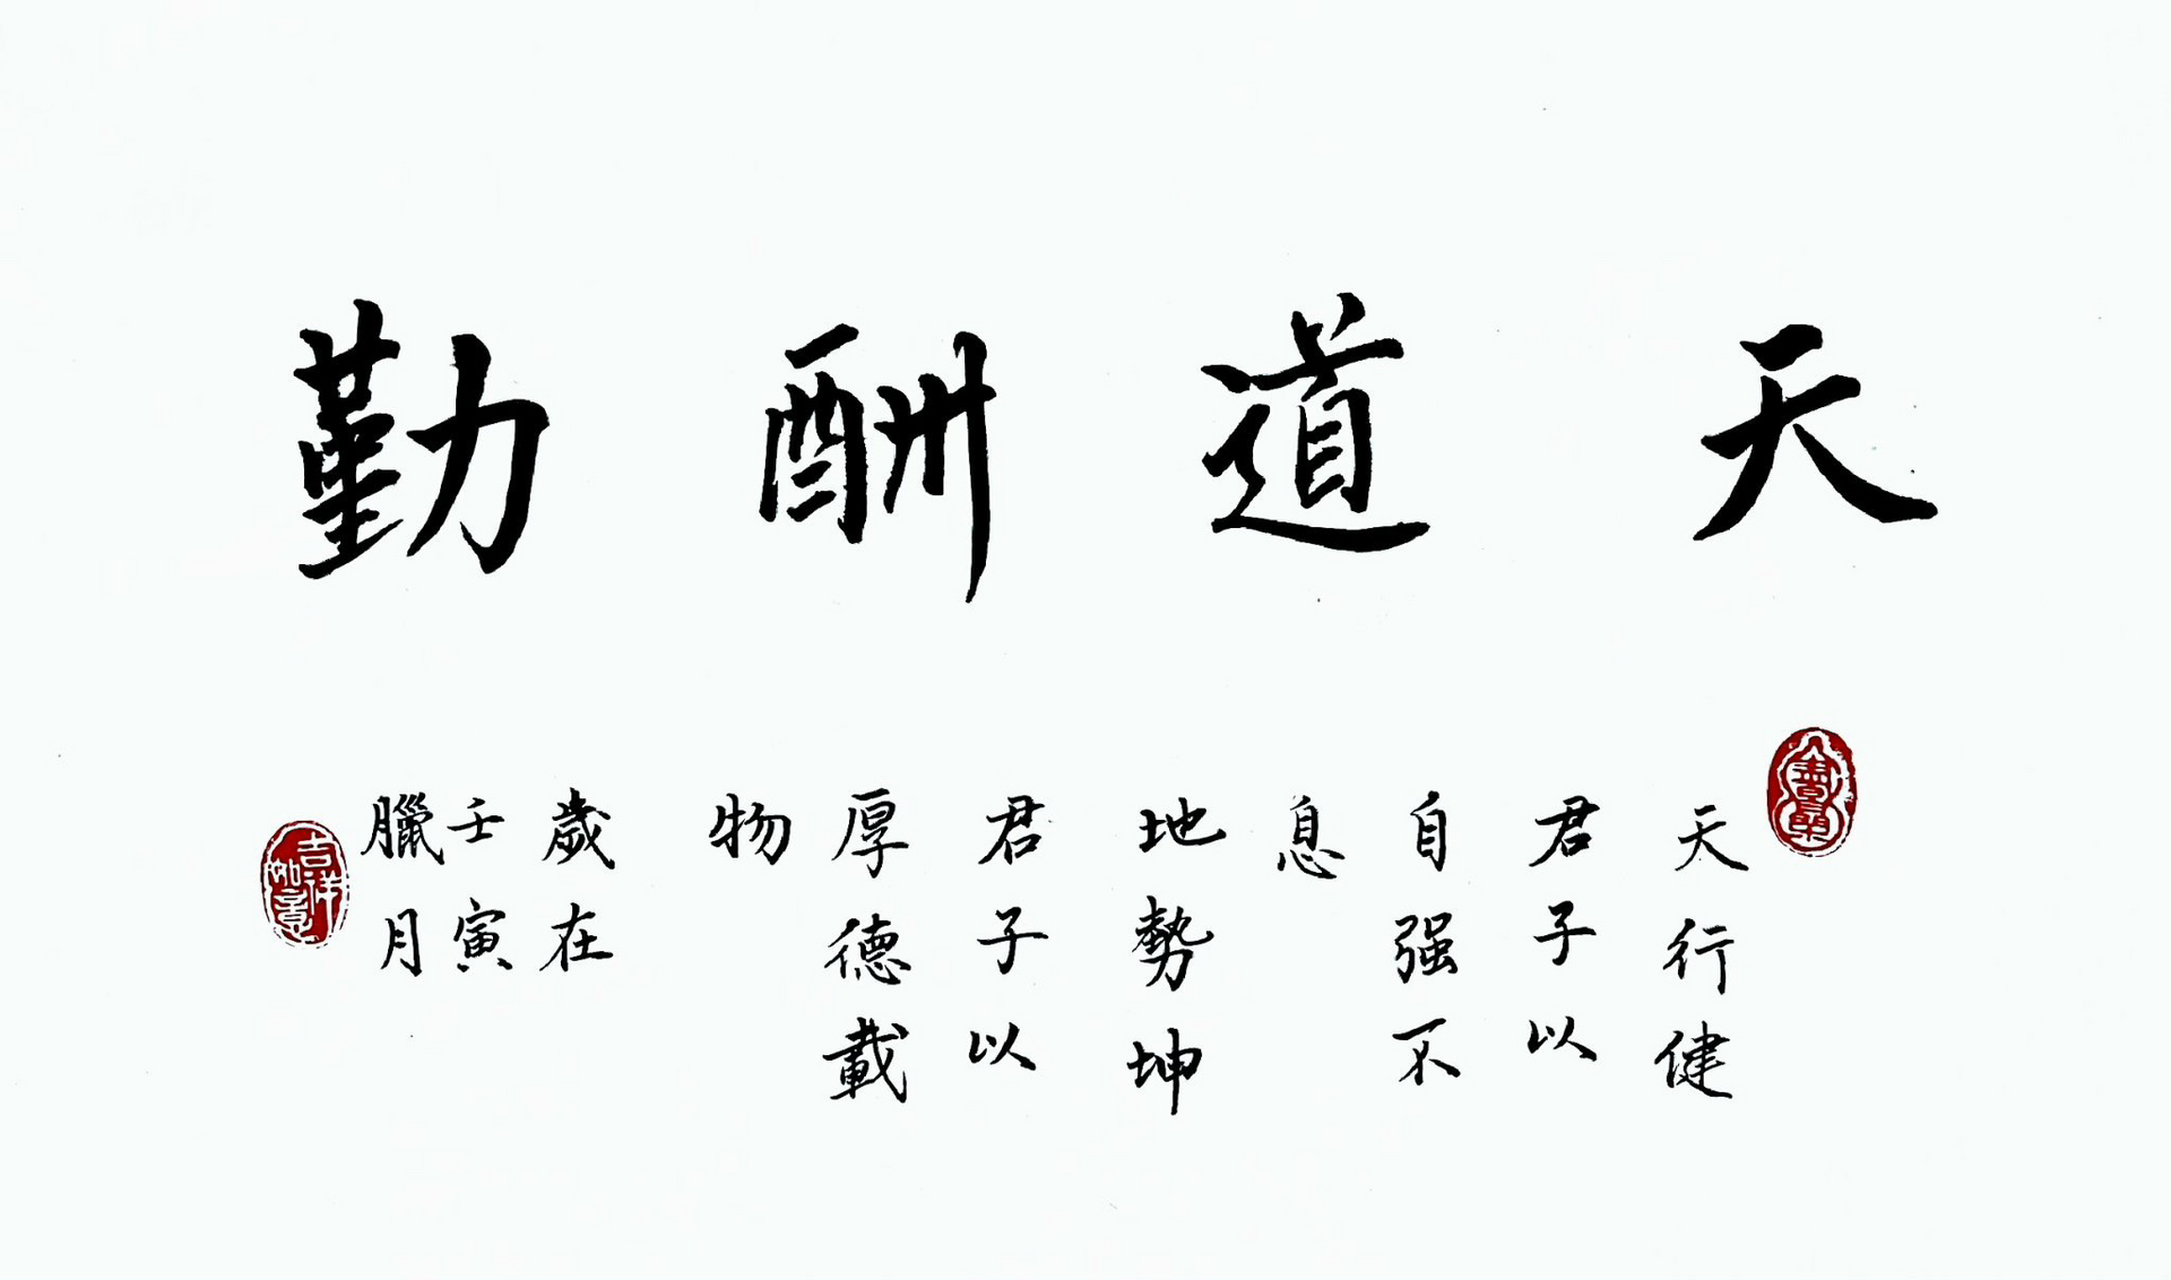 天道酬勤
天行健
君子以
自强不
息
地勢坤
君子以
厚德載
物
歲在
壬寅
臘月
吉祥
如意